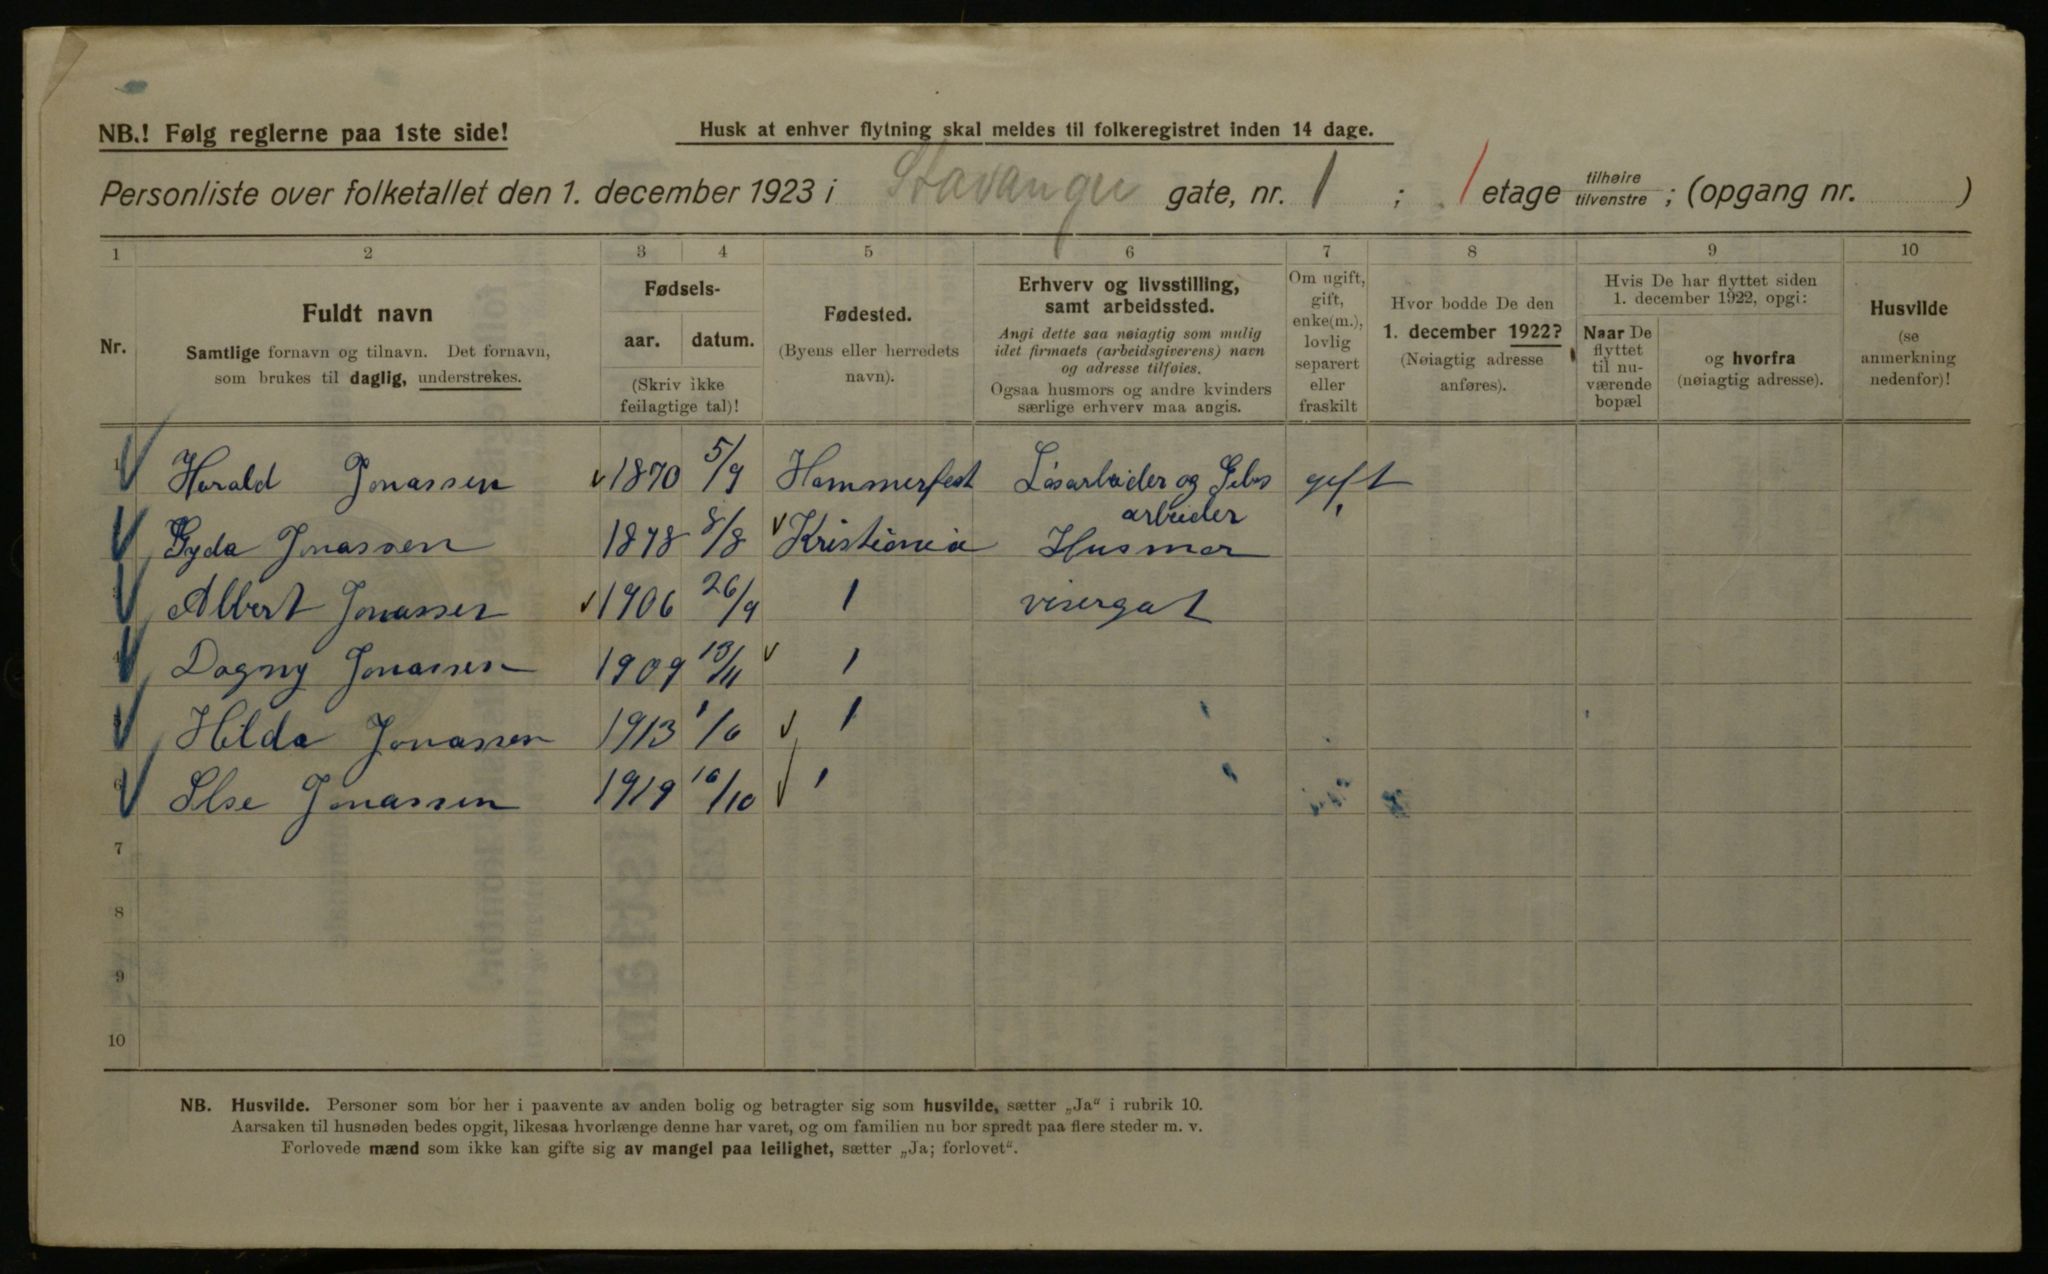 NB.! Følg reglerne paa 1ste side!
Husk at enhver flytning skal meldes til folkeregistret inden 14 dage.
Personliste over folketallet den 1. december 1923 i Stavanger gate, nr. 1 ; 1 etage tilhøire tilvenstre ; (opgang nr. )
1 2 3 4 5 6 7 8 9 10
Nr.
Fuldt navn
Samtlige fornavn og tilnavn. Det fornavn,
som brukes til daglig, understrekes.
Fødsels-
aar. datum.
(Skriv ikke
feilagtige tal)!
Fødested.
(Byens eller herredets
navn).
Erhverv og livsstilling,
samt arbeidssted.
Angi dette saa nøiagtig som mulig
idet firmaets (arbeidsgiverens) navn
og adresse tilføies.
Ogsaa husmors og andre kvinders
særlige erhverv maa angis.
Om ugift,
gift,
enke(m.),
lovlig
separert
eller
fraskilt
Hvor bodde De den
1. december 1922?
(Nøiagtig adresse
anføres).
Hvis De har flyttet siden
1. december 1922, opgi:
Naar De
flyttet
til nu-
værende
bopæl
og hvorfra
(nøiagtig adresse).
Husvilde
(se
anmerkning
nedenfor)!
1 Harald Jonassen 1870 5/9 Hammerfest Løsarbeider og gift
arbeider
Gyda Jonassen 1878 8/8 Kristiania Husmor
3 Albert Jonassen 1906 26/9 1 visergat
4 Dagny Jonassen 1909 13/11 1
Hilda Jonassen 1913 1/6 1
6 Else Jonassen 1919 16/10 1
7
8
9
10
NB. Husvilde. Personer som bor her i paavente av anden bolig og betragter sig som husvilde, sætter „Ja“ i rubrik 10.
Aarsaken til husnøden bedes opgit, likesaa hvorlænge denne har varet, og om familien nu bor spredt paa flere steder m. v.
Forlovede mænd som ikke kan gifte sig av mangel paa leilighet, sætter „Ja; forlovet“.